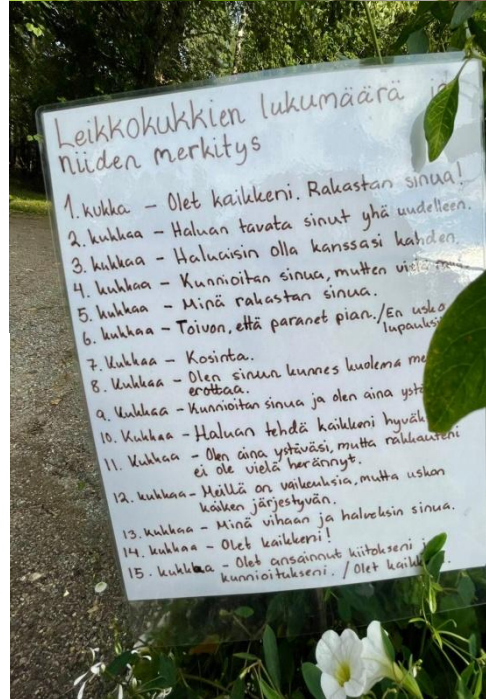 Leikkokukkien lukumäärä
niiden merkitys
1. kukka – Olet kaikkeni. Rakastan sinua!
2. kukkaa – Haluan tavata sinut yhä uudelleen.
3. kukkaa – Haluaisin olla kanssasi kahden.
4. kukkaa – Kunnioitan sinua, mutten vielä
5. kukkaa – Minä rakastan sinua.
6. kukkaa – Toivon, että paranet pian./En
7. Kukkaa – Kosinta.
8. Kukkaa – Olen sinun kunnes kuolema
erottaa.
9. Kukkaa – Kunnioitan sinua ja olen aina
10. Kukkaa – Haluan tehdä kaikkeni
11. Kukkaa – Olen aina ystäväsi, mutta rakkauteni
ei ole vielä herännyt.
12. kukkaa – Meillä on vaikeuksia, mutta uskon
kaiken järjestyvän.
13. kukkaa – Minä vihaan ja halveksin sinua.
14. kukkaa – Olet kaikkeni!
15. kukkaa – Olet ansainnut kiitokseni
kunnioitukseni. / Olet